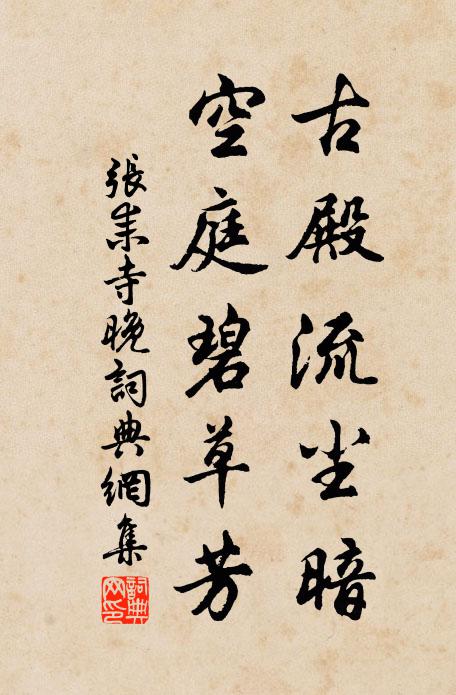 古殿流尘暗
空庭碧草芳
張耒寺晚詞典網集
詞典